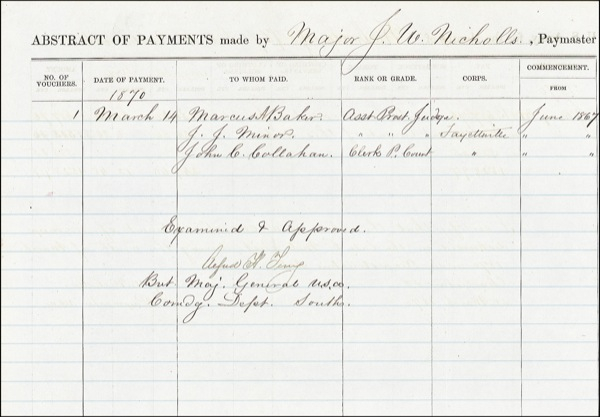 ABSTRACT OF PAYMENTS made by Major J. W. Nicholls. , Paymaster
NO. OF VOUCHERS. DATE OF PAYMENT. TO WHOM PAID. RANK OR GRADE. CORPS. COMMENCEMENT.
FROM
1870
1 March 14 Marcus A Baker. Asst. Prost. Judge. June 1867
J. J. Minor. " " " " "
John C. Collahan. Clerk P. Court " " "
Examined & Approved.
Alfred H. Terry
Bvt. Maj. General U.S.A.
Comdg. Dept. South.